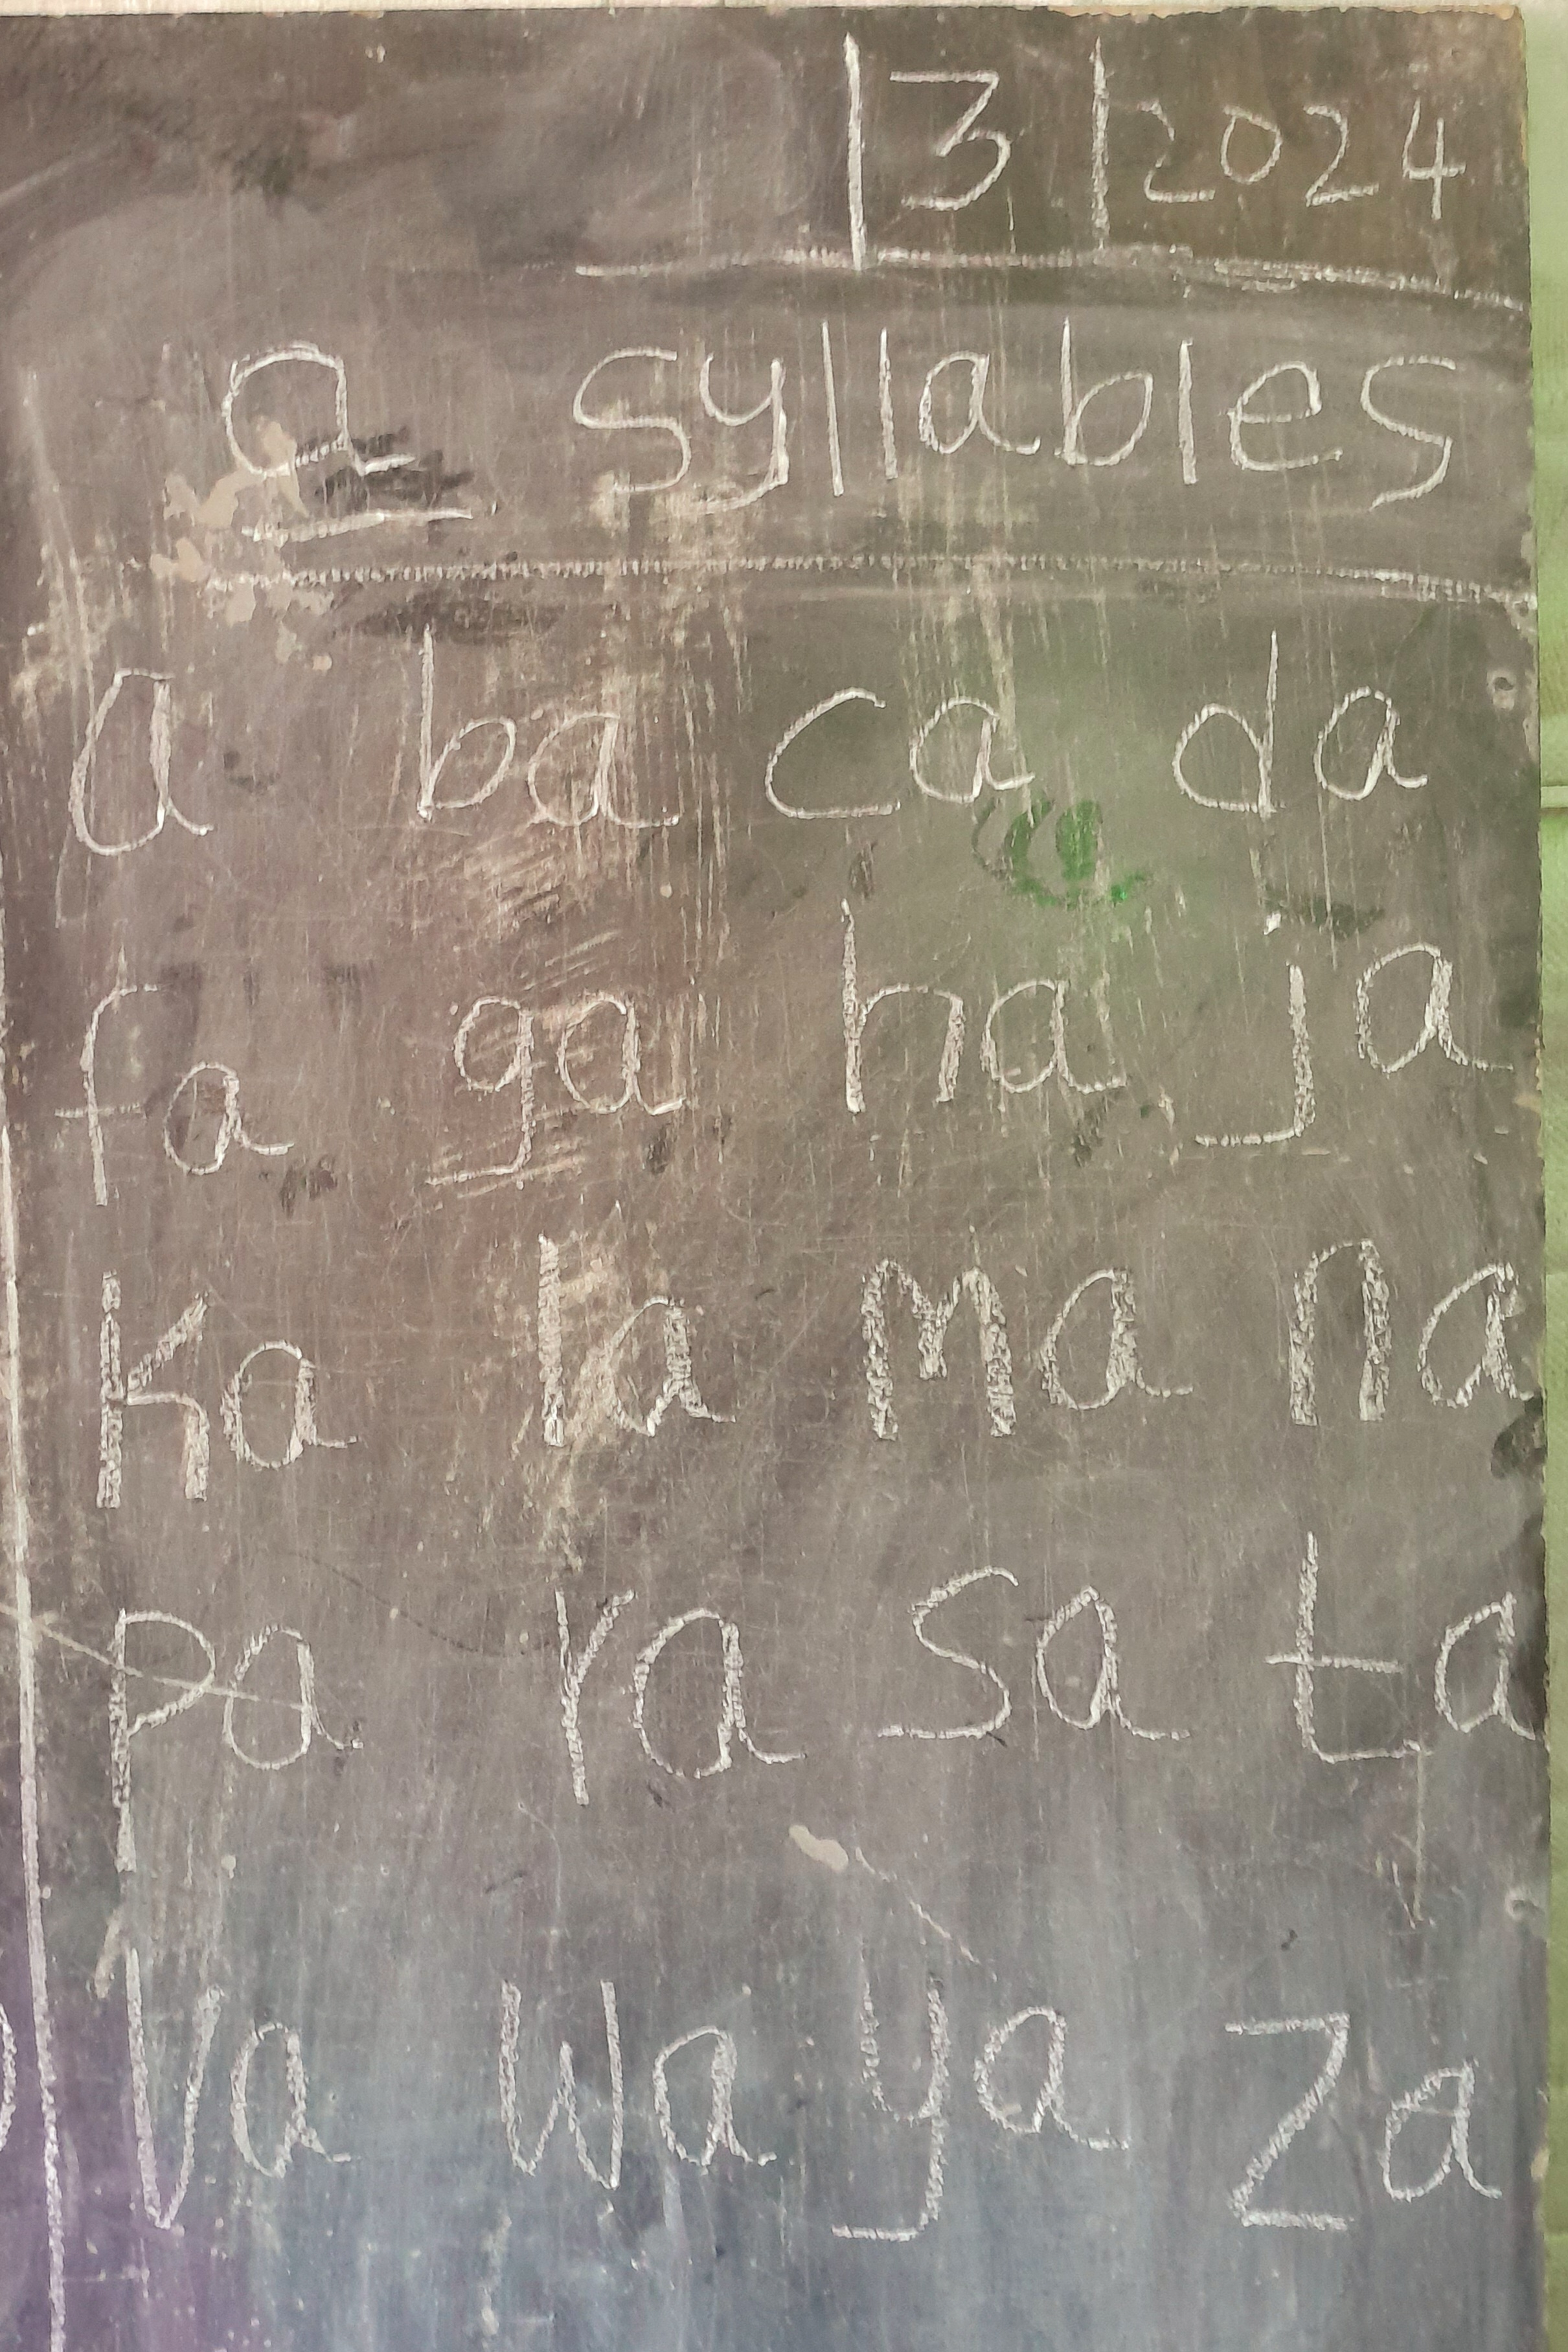 |3|2024
a syllables
a ba ca da
fa ga ha ja
Ka la ma na
pa ra sa ta
Va Wa ya Za